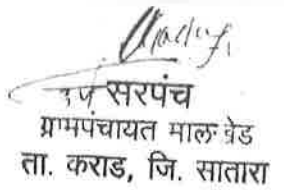 सरपंच
ग्रामपंचायत मालखेड
ता. कराड, जि. सातारा